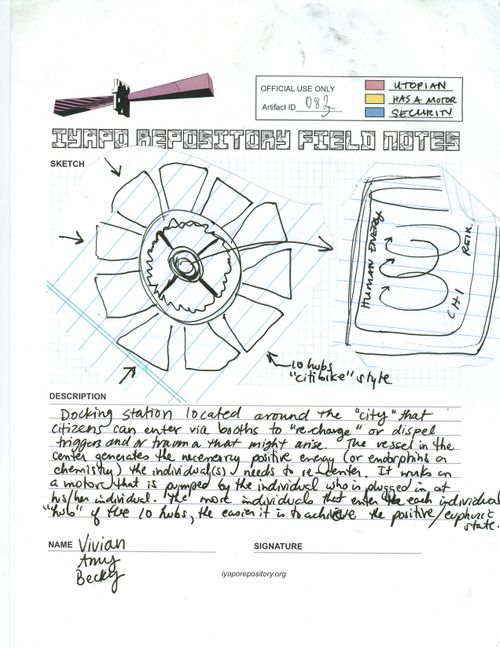 OFFICIAL USE ONLY
Artifact ID 082
UTOPIAN
HAS A MOTOR
SECURITY
IYAPO REPOSITORY FIELD NOTES
SKETCH
HUMAN ENERGY
CHI
REIK
10 hubs
"citibike" style
DESCRIPTION
Docking station located around the "city" that
citizens can enter via booths to "re-charge" or dispel
triggers and/or trauma that might arise. The vessel in the
center generates the necessary positive energy (or endorphins or
chemistry) the individual(s) needs to re-center. It works on
a motor that is pumped by the individual who is plugged in at
his/her individual. The more individuals that enter the each individual
"hub" of the 10 hubs, the easier it is to achieve the positive/euphoric
state.
NAME Vivian
Amy
Becky
SIGNATURE
iyaporepository.org